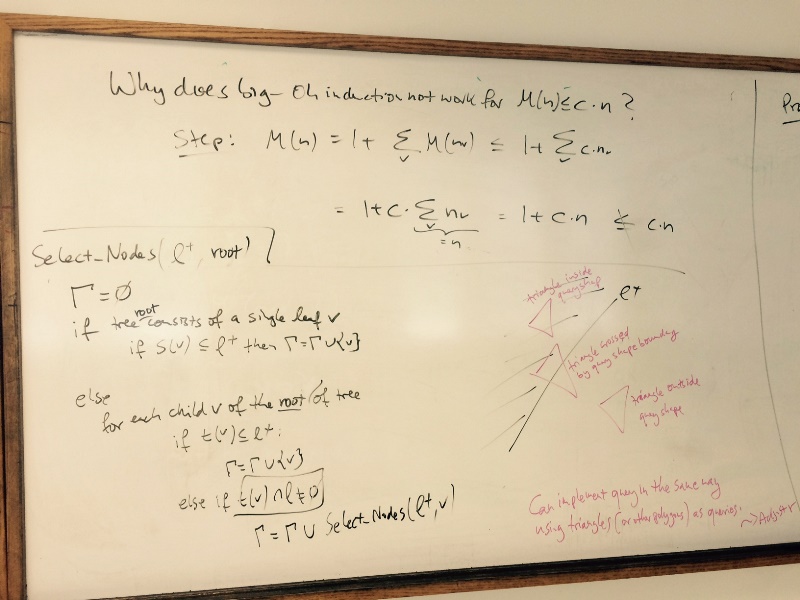 Why does big-Oh induction not work for M(n)≤c·n?
Step: M(n) = 1+ ∑ᵥ M(nᵥ) ≤ 1+ ∑ᵥ c·nᵥ
= 1+c·∑ᵥ nᵥ = 1+c·n ≰ c·n
=n
Select_Nodes(ℓ⁺, root)
Γ=∅
root
if tree consists of a single leaf v
if S(v) ⊆ ℓ⁺ then Γ=Γ∪{v}
else
for each child v of the root of tree
if t(v)⊆ℓ⁺:
Γ=Γ∪{v}
else if t(v)∩ℓ≠∅
Γ=Γ∪ Select_Nodes(ℓ⁺,v)
triangle inside
query shape
ℓ⁺
triangle crossed
by query shape boundary
triangle outside
query shape
Can implement query in the same way
using triangles (or other polygons) as queries.